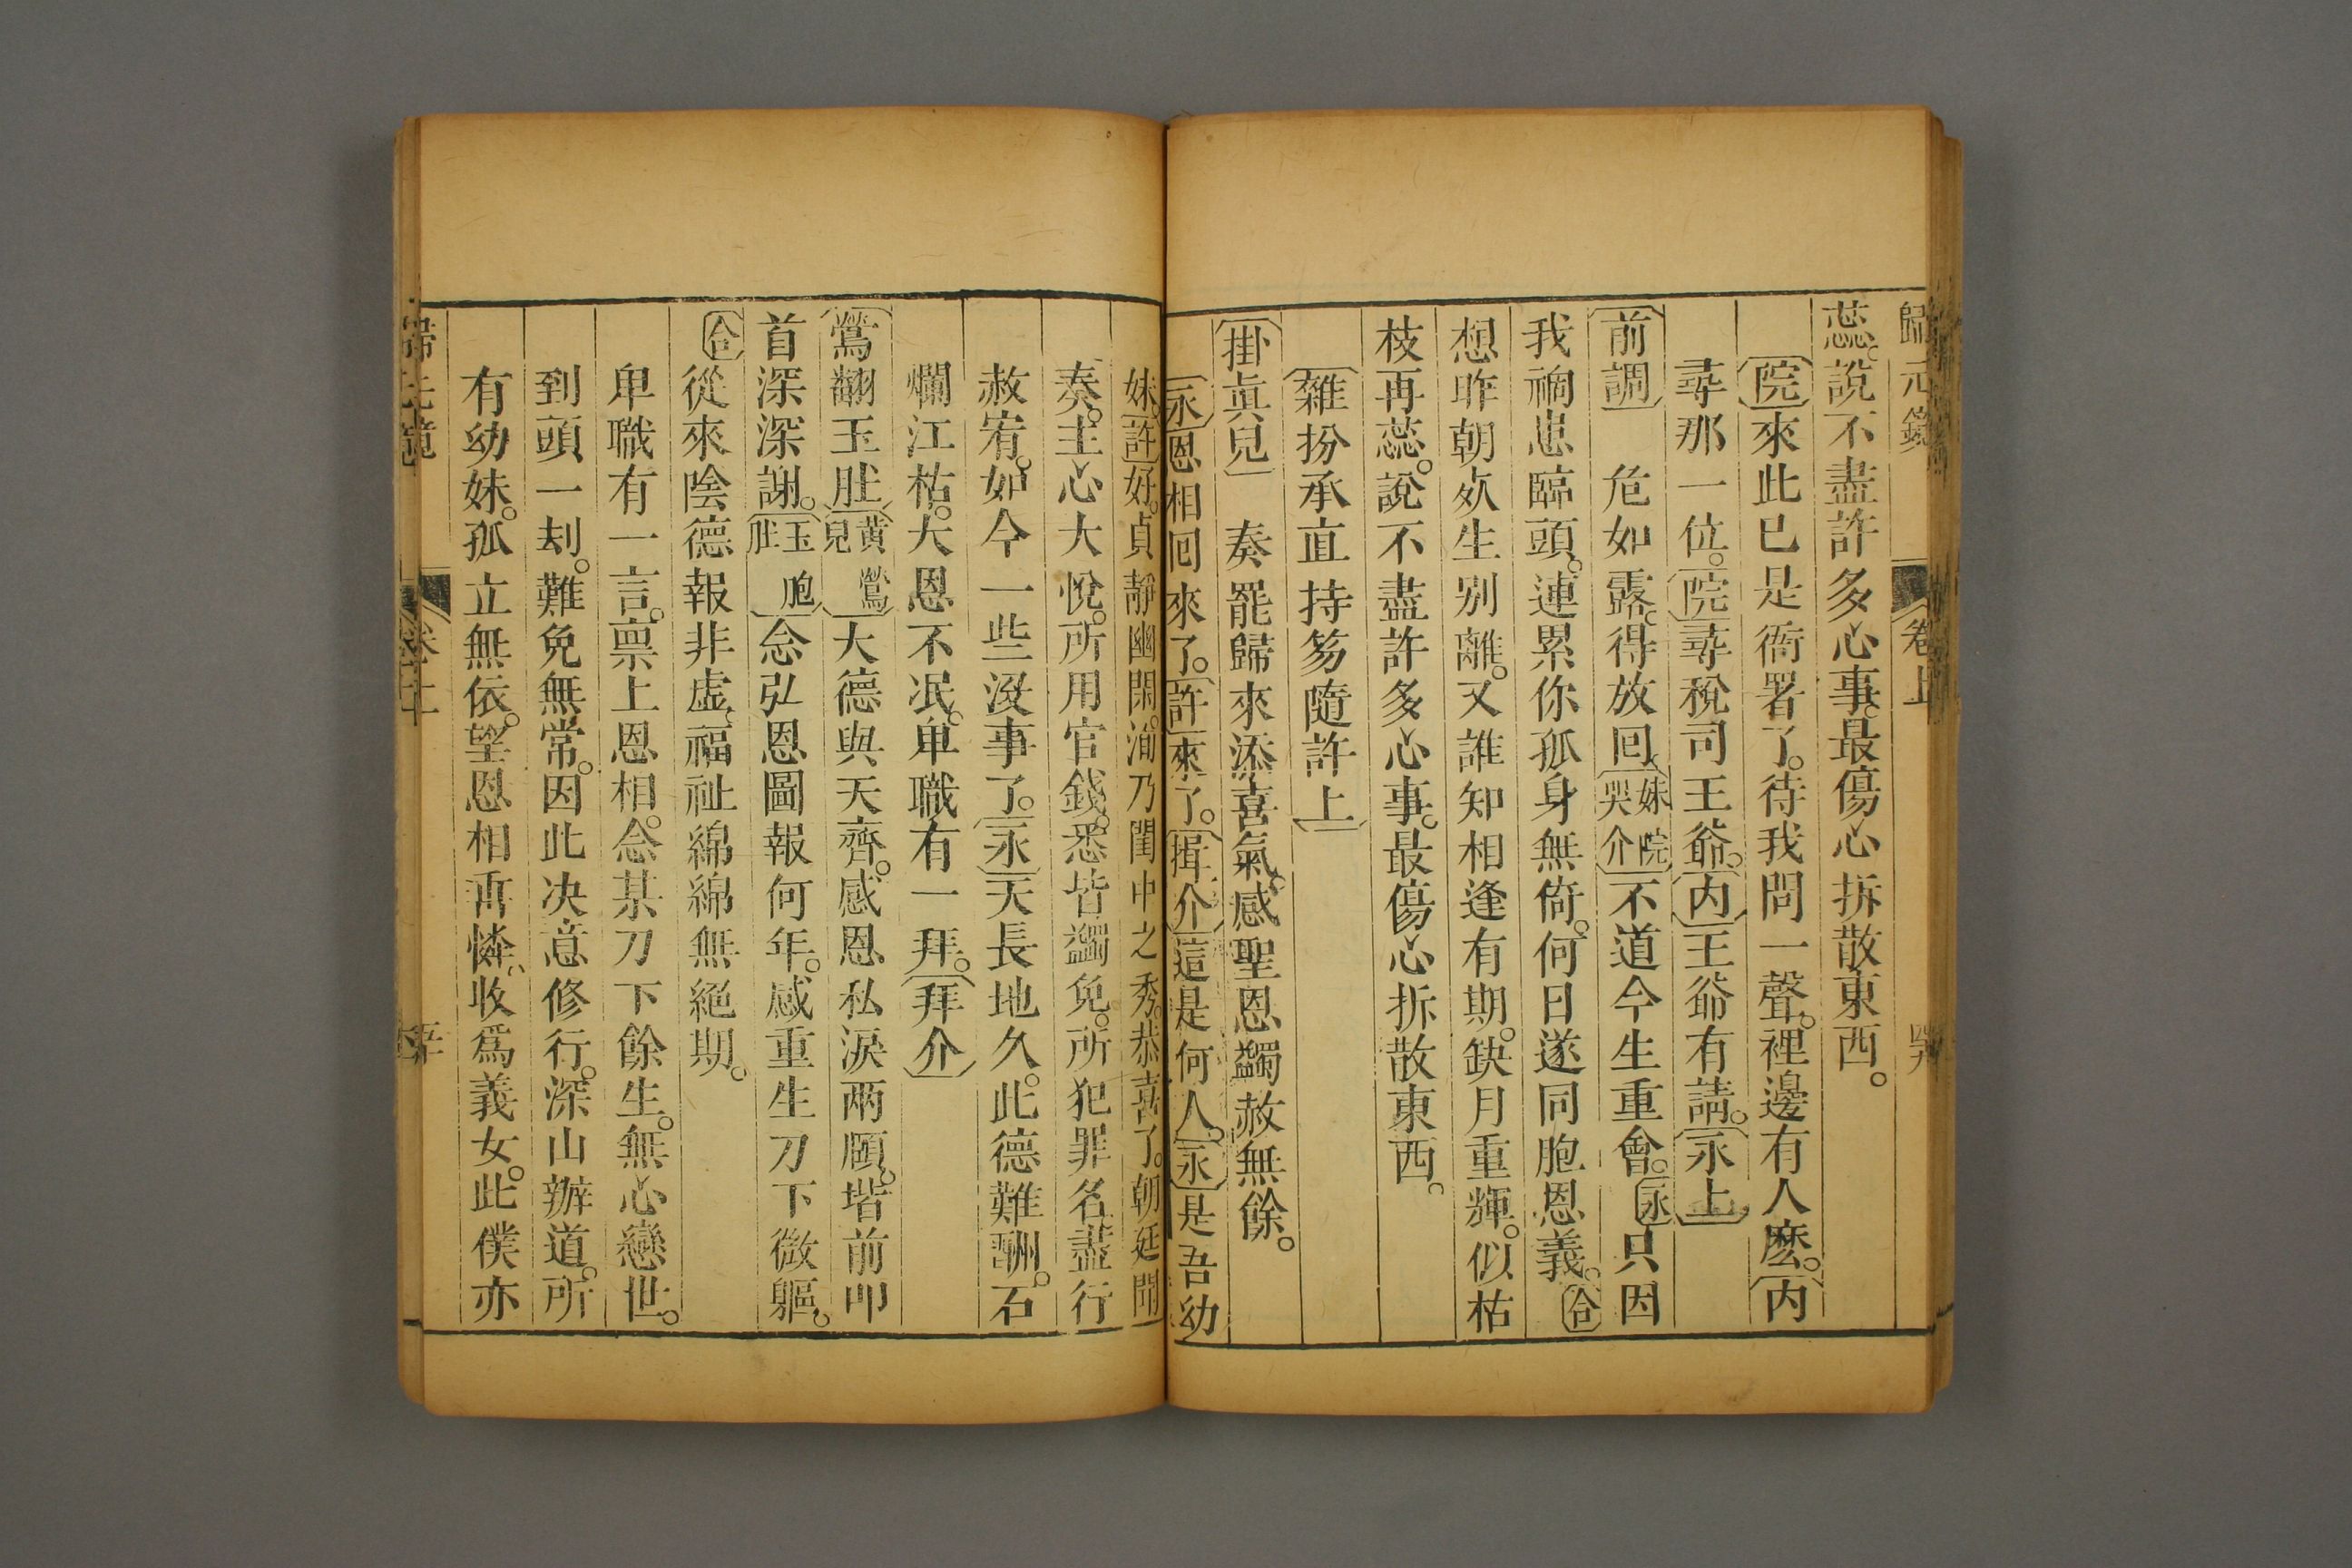 歸元鏡 卷上
蕊。說不盡許多心事。最傷心拆散東西。
院來此已是衙署了。待我問一聲。裡邊有人麽。内
尋那一位。院尋稅司王爺。内王爺有請。永上
前調 危如露。得放囘妹院哭介不道今生重會。永只因
我禍患臨頭。連累你孤身無倚。何日遂同胞恩義。合
想昨朝死生别離。又誰知相逢有期。缺月重輝。似枯
枝再蕊。說不盡許多心事。最傷心拆散東西。
雜扮承直持笏隨許上
掛眞兒 奏罷歸來添喜氣。感聖恩蠲赦無餘。
永恩相囘來了。許來了。揖介這是何人。永是吾幼
妹。許好。貞靜幽閑。洵乃閨中之秀。恭喜了。朝廷聞
奏。主心大悅。所用官錢。悉皆蠲免。所犯罪名盡行
赦宥。如今一些沒事了。永天長地久。此德難酬。石
爛江枯。大恩不泯。卑職有一拜。拜介
鶯翻玉肚黃鶯兒大德與天齊。感恩私淚兩頤。堦前叩
首深深謝。玉胞肚念弘恩圖報何年。感重生刀下微軀。
合從來陰德報非虛。福祉綿綿無絕期。
卑職有一言。禀上恩相。念某刀下餘生。無心戀世。
到頭一刦。難免無常。因此决意修行。深山辦道。所
有幼妹。孤立無依。望恩相垂憐。收爲義女。此僕亦